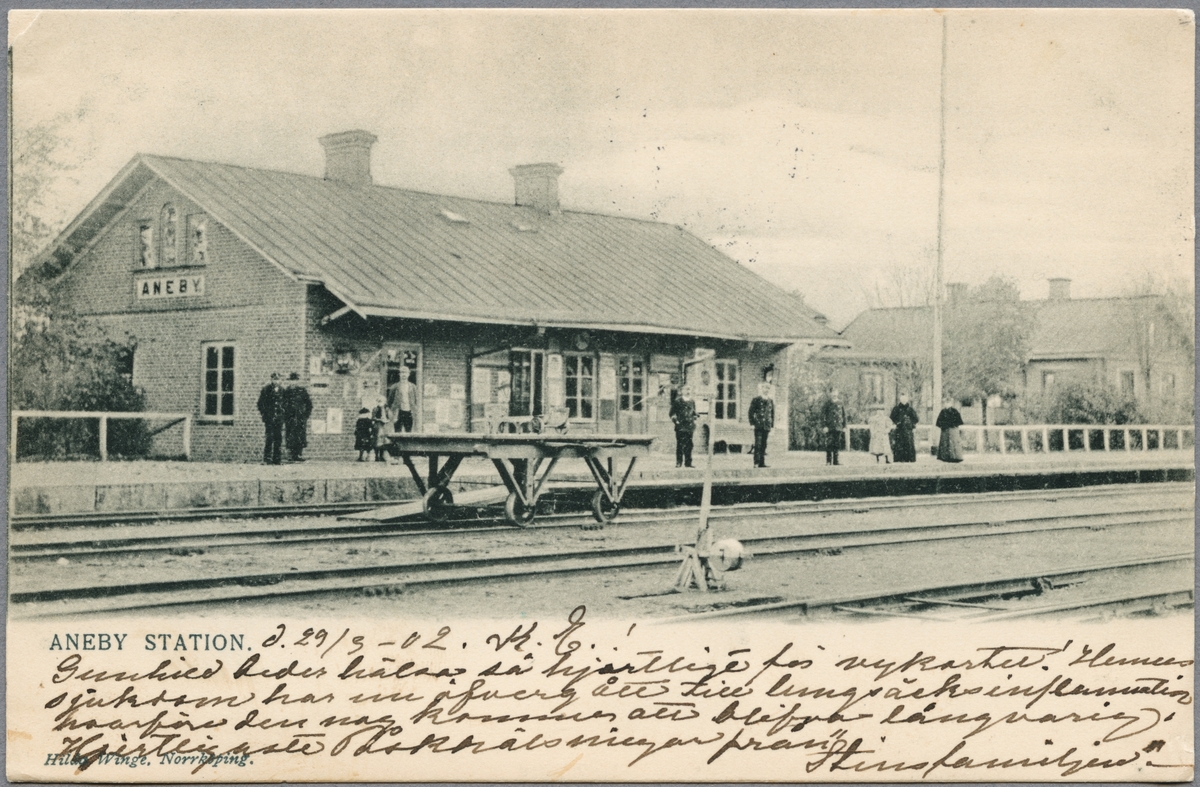 ANEBY
ANEBY STATION. d. 29/3 -02. K. E.!
Gunhild beder hälsa så hjärtligt för vykortet! Hennes
sjukdom har nu öfvergått till lungsäcksinflammation
hvarföre den nog kommer att blifva långvarig.
Hjertligaste Påskhälsningar från
"Stinsfamiljen"
Hilda Winge, Norrköping.